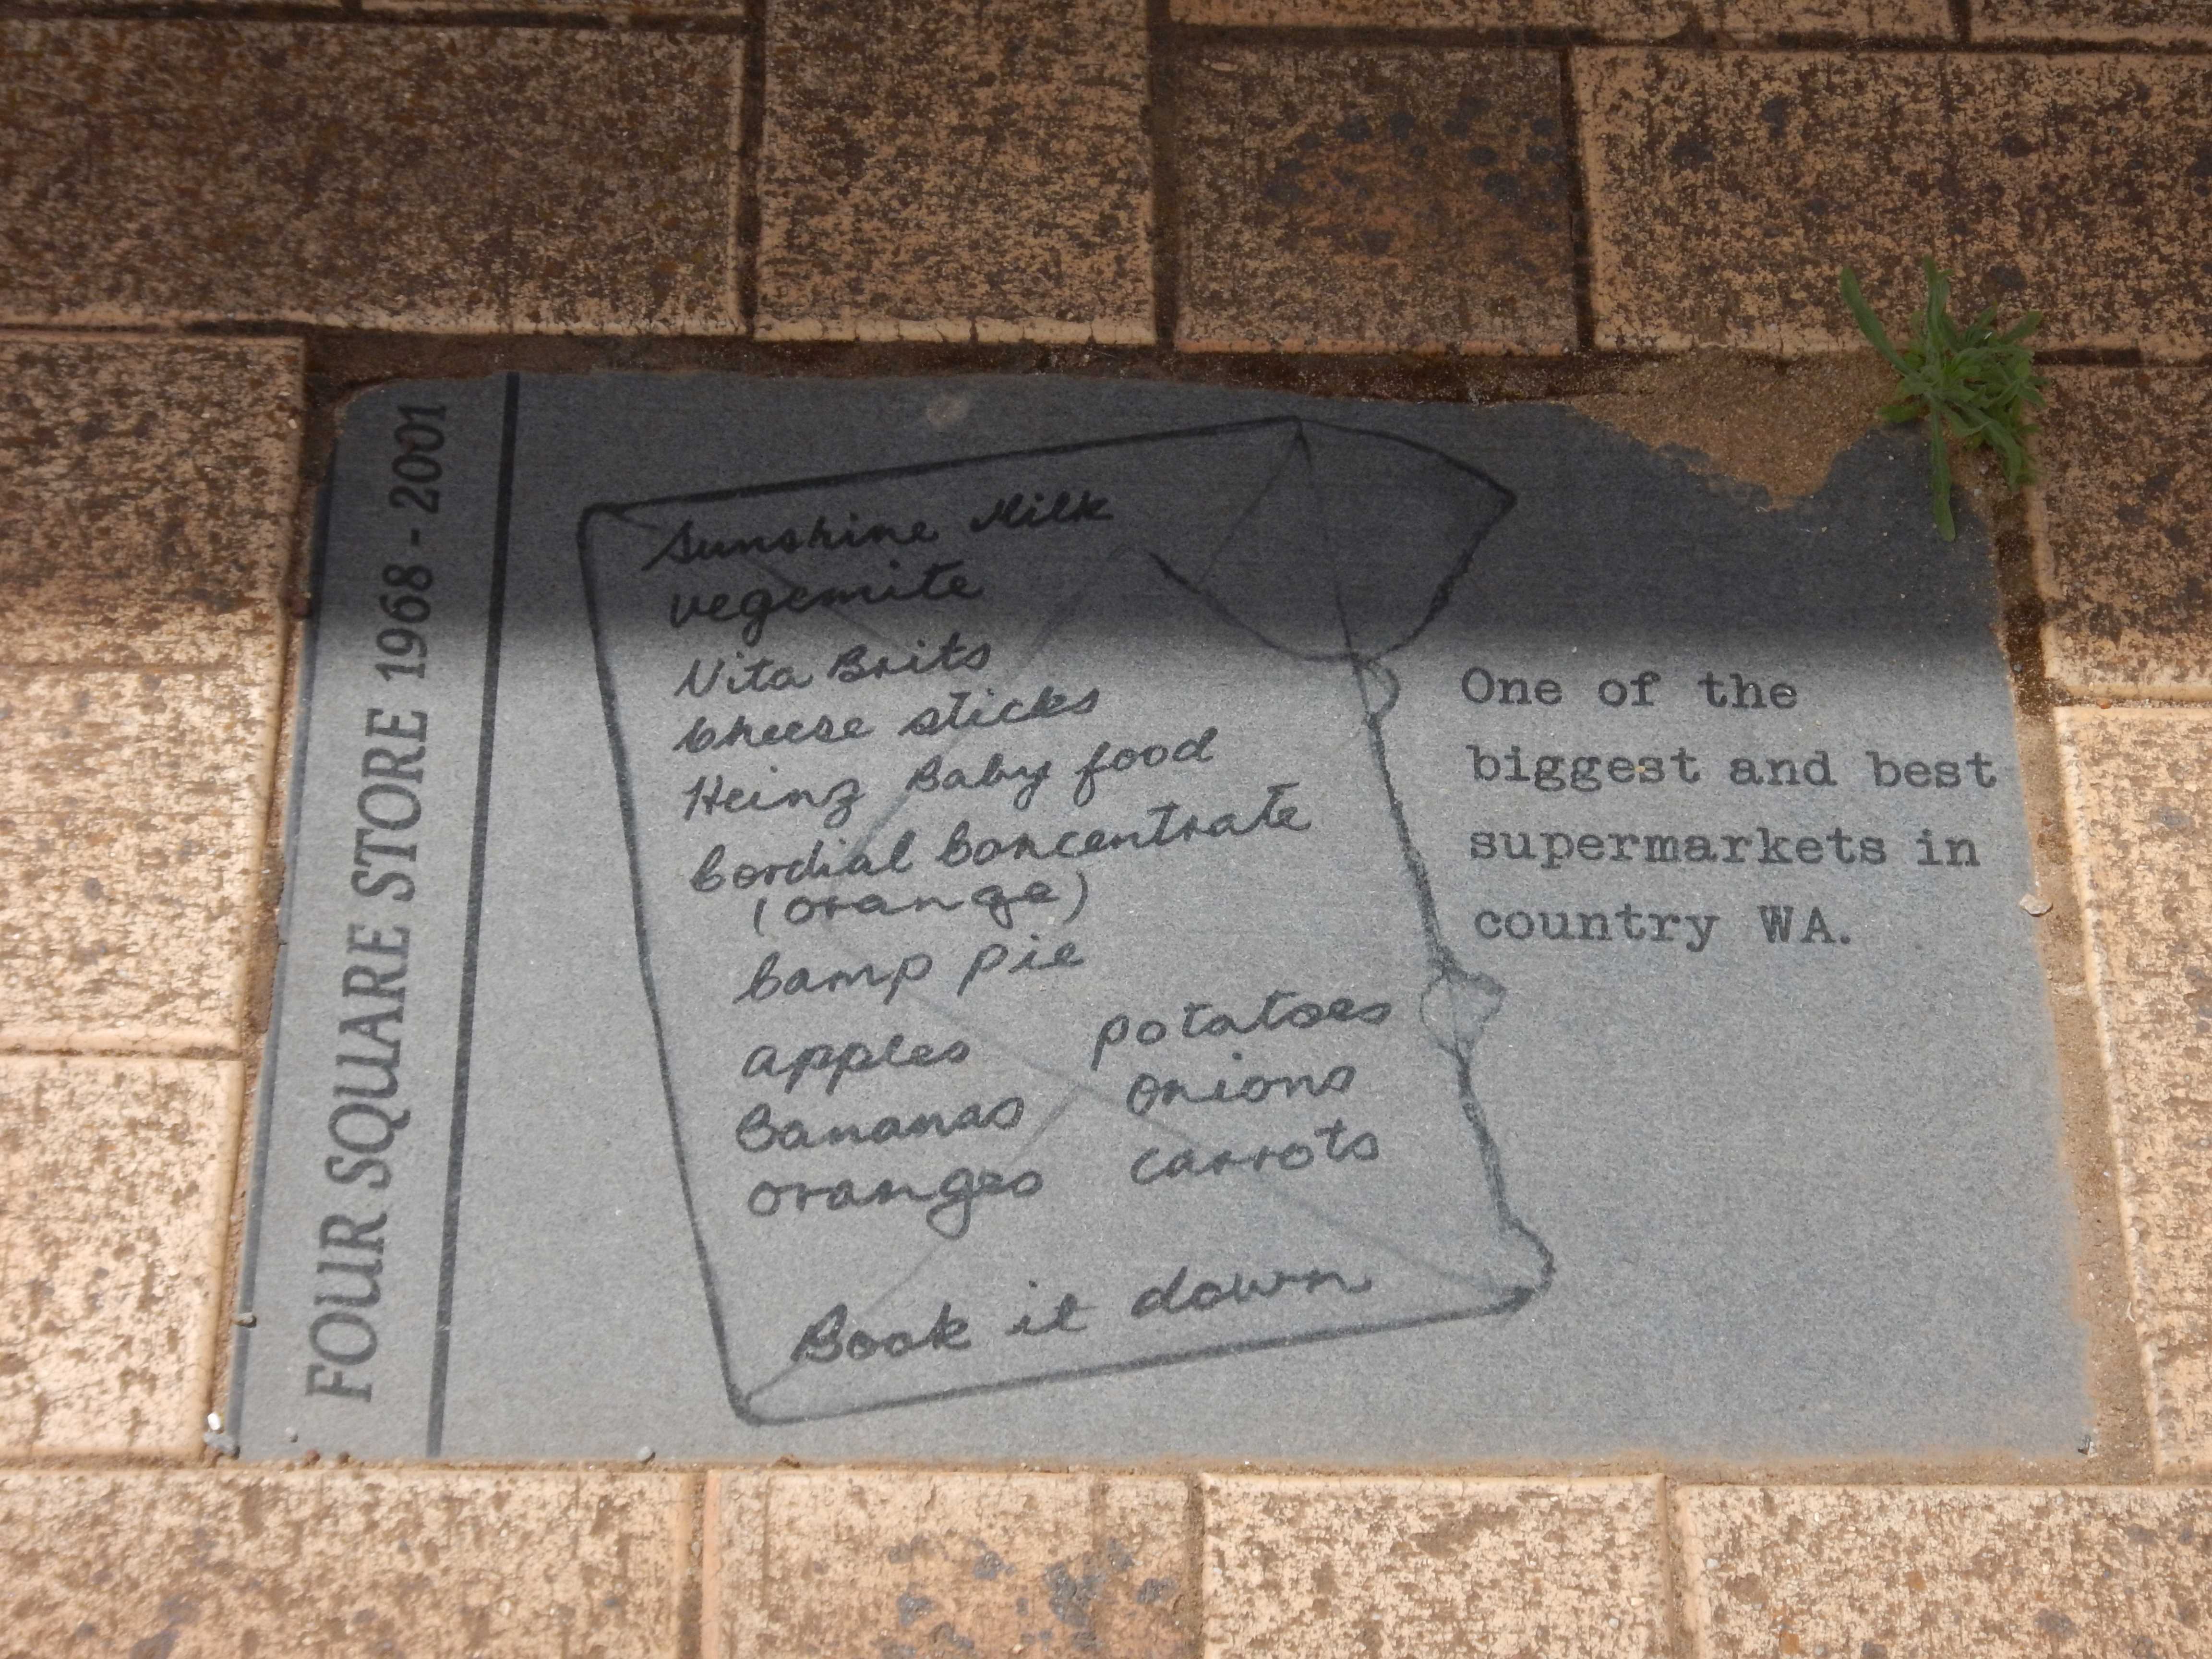 FOUR SQUARE STORE 1968 - 2001
Sunshine Milk
vegemite
Vita Brits
Cheese sticks
Heinz Baby food
Cordial Concentrate
(orange)
Camp pie
apples potatoes
Bananas onions
oranges carrots
Book it down
One of the
biggest and best
supermarkets in
country WA.